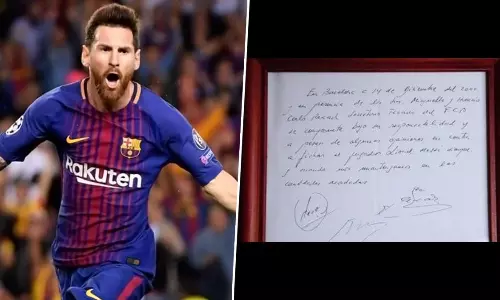 Rakuten
En Barcelona a 14 de Diciembre del 2000
y en presencia de los Sres. Minguella y Horacio
Carles Rexach Secretario Técnico del F.C.B
se compromete bajo su responsabilidad y
a pesar de algunas opiniones en contra
a fichar al jugador Lionel Messi siempre
y cuando nos mantengamos en las
cantidades acordadas